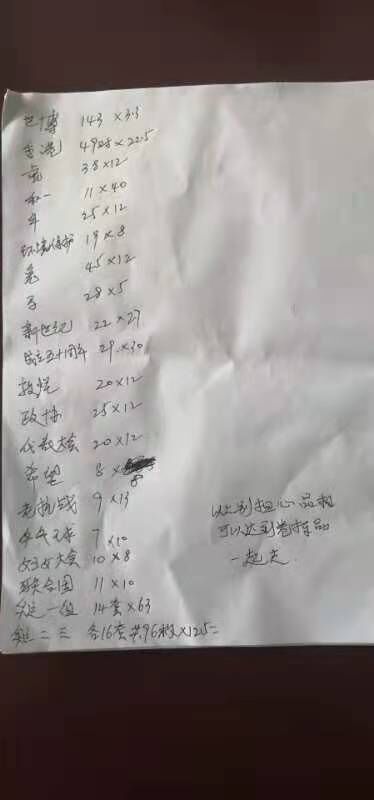 世博 143×3.3
香港 4928×22.5
虎 38×12
和一 11×40
牛 25×12
环境保护 19×8
兔 45×12
28×5
新世纪 22×27
成立五十周年 29×30
敦煌 20×12
政协 25×12
代表大会 20×12
希望 8×8
老抗战 9×13
乒乓球 7×10
妇女大会 10×8
联合国 11×10
一组 14套×63
二三 各16套共96枚×12.5=
以上别担心品相
可以达到卷拆品
一起走.